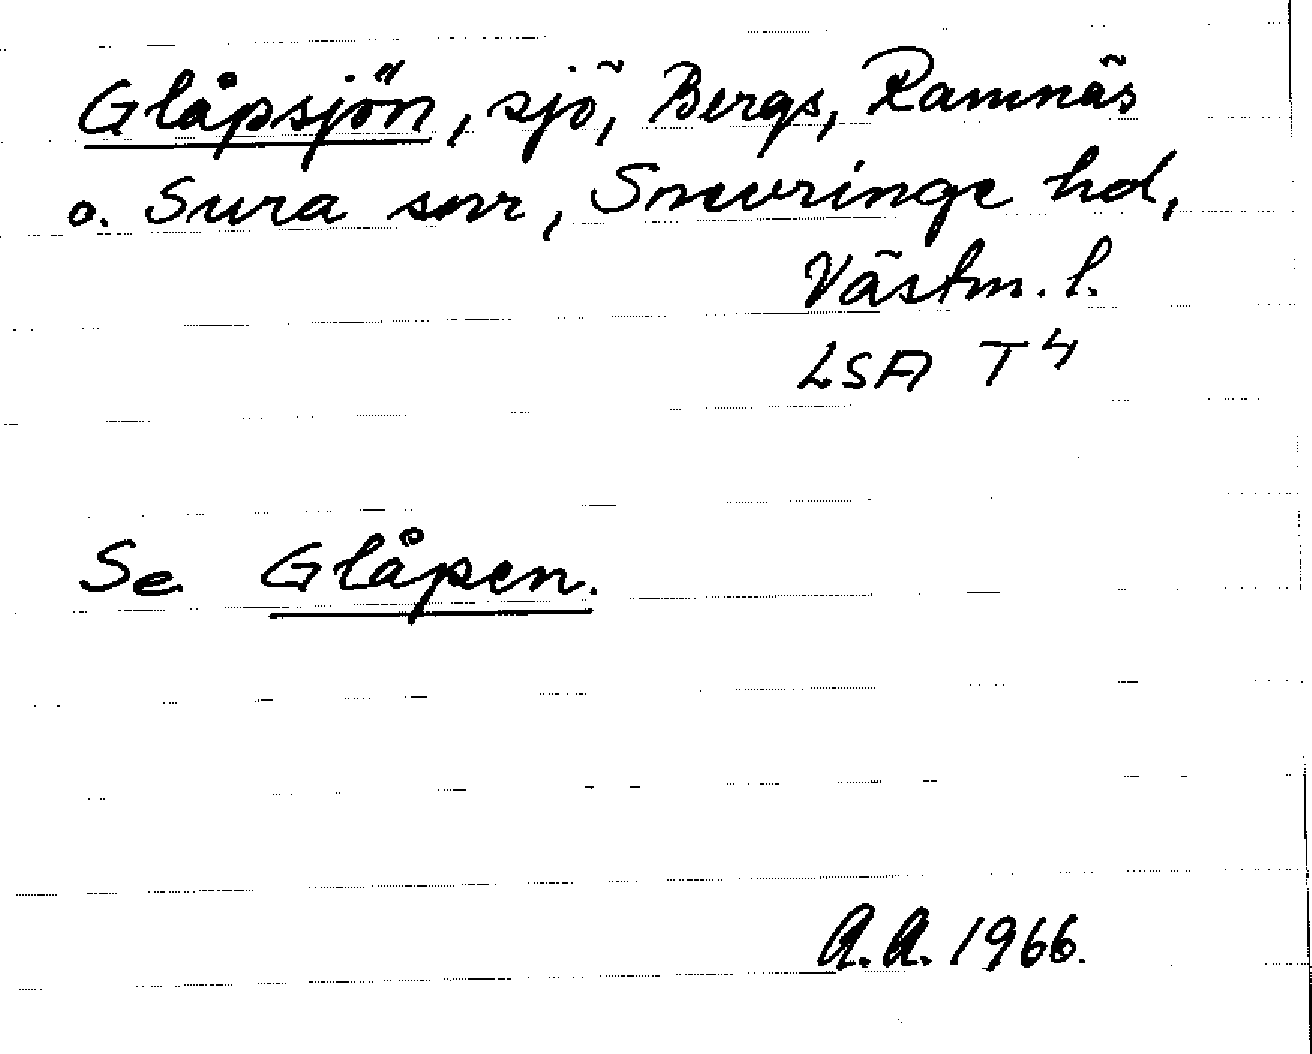 Glåpsjön, sjö, Bergs, Ramnäs
o. Sura snr, Snevringe hd,
Västm. l.
LSA T 4
Se Glåpen.
A.A. 1966.